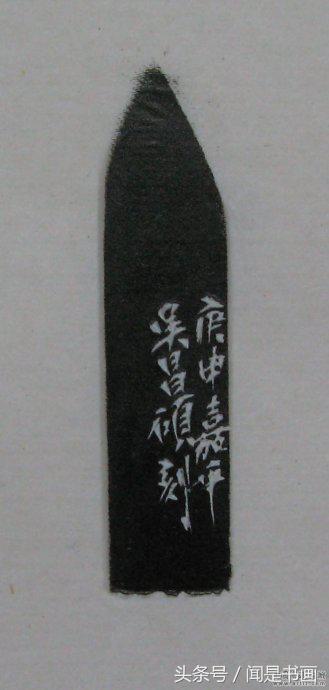 庚申嘉平
吴昌碩刻
头条号／闻是书画